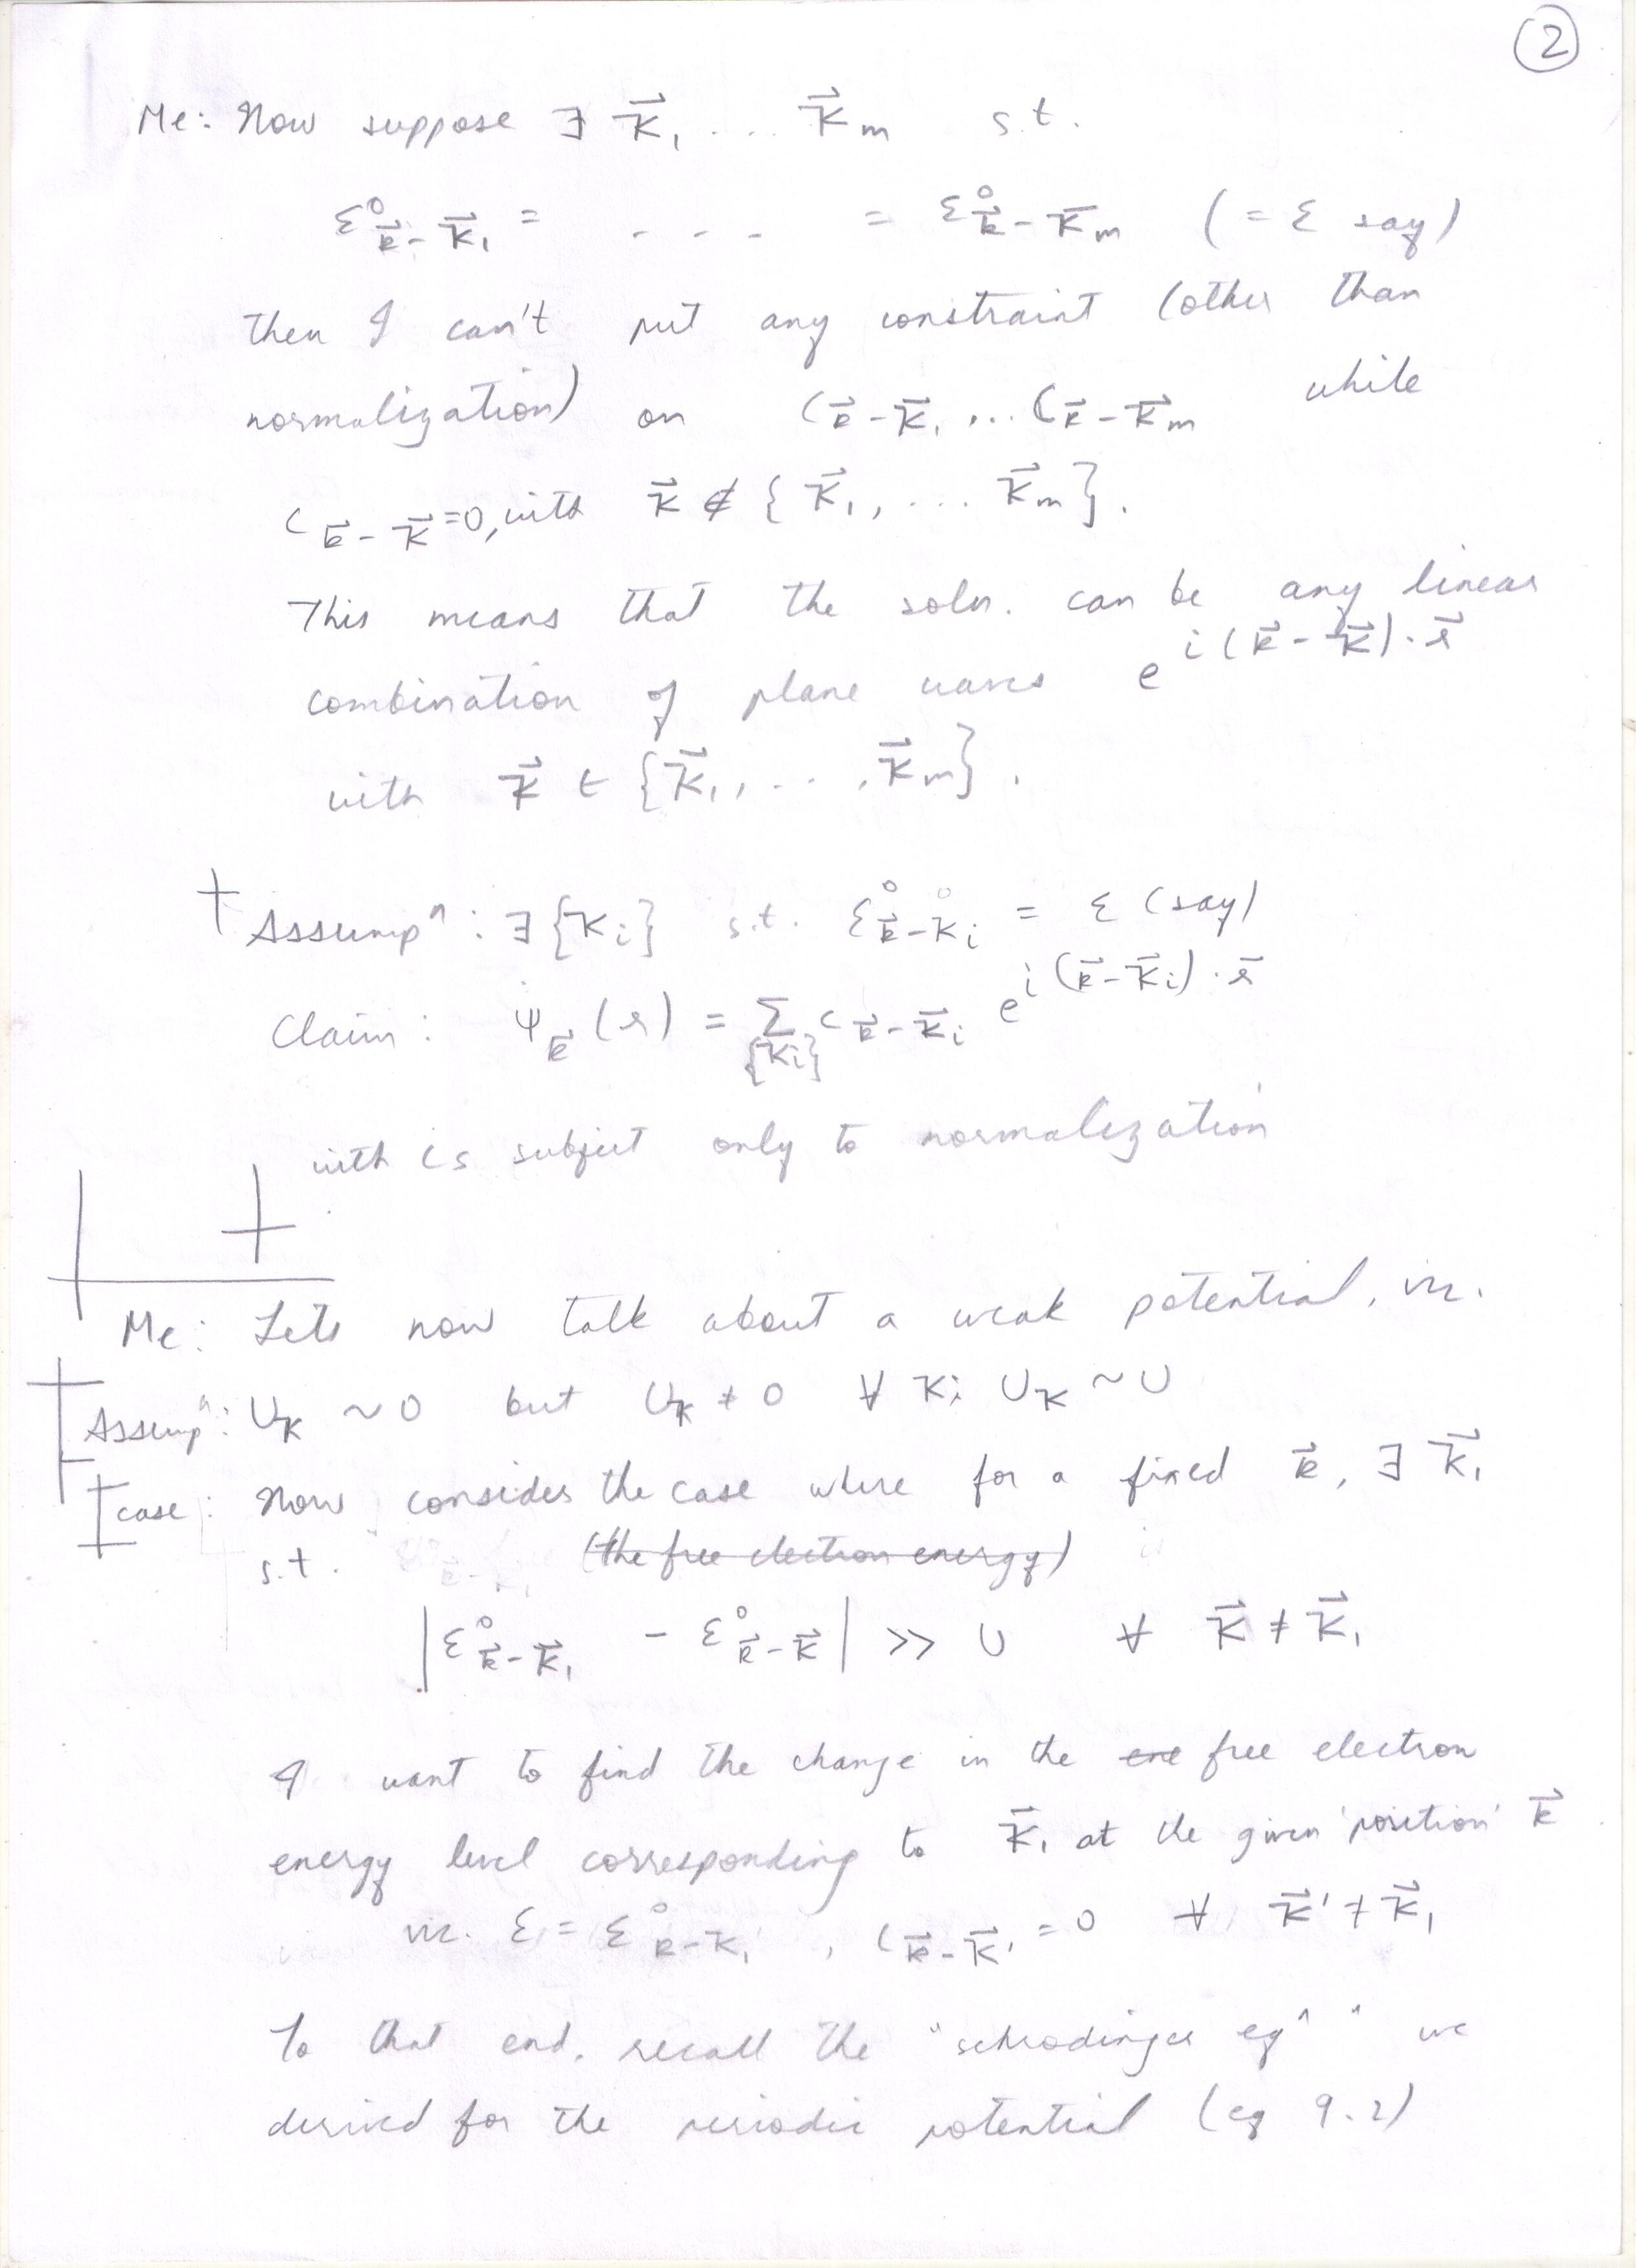 2
Me: Now suppose ∃ K⃗₁ .... K⃗ₘ s.t.
ε⁰_{k⃗-K⃗₁} = - - - = ε⁰_{k⃗-K⃗ₘ} (= ε say)
then I can't put any constraint (other than
normalization) on C_{k⃗-K⃗₁} ... C_{k⃗-K⃗ₘ} while
C_{k⃗-K⃗}=0, with K⃗ ∉ {K⃗₁, ... K⃗ₘ}.
This means that the soln. can be any linear
combination of plane waves e^{i(k⃗-K⃗)·r⃗}
with K⃗ ∈ {K⃗₁, ..., K⃗ₘ}.
† Assumpⁿ: ∃ {Kᵢ} s.t. ε⁰_{k⃗-Kᵢ} = ε (say)
Claim: ψ_{k⃗}(r) = Σ_{{Kᵢ}} C_{k⃗-K⃗ᵢ} e^{i(k⃗-K⃗ᵢ)·r⃗}
with Cs subject only to normalization
Me: Lets now talk about a weak potential, viz.
Assumpⁿ: U_K ~ 0 but U_K ≠ 0 ∀ K; U_K ~ U
case: Now consider the case where for a fixed k⃗, ∃ K⃗₁
s.t. (the free electron energy)
|ε⁰_{k⃗-K⃗₁} - ε⁰_{k⃗-K⃗}| >> U ∀ K⃗ ≠ K⃗₁
I want to find the change in the ene free electron
energy level corresponding to K⃗₁ at the given 'position' k⃗
viz. ε = ε⁰_{k-K₁}, C_{k⃗-K⃗'} = 0 ∀ K⃗' ≠ K⃗₁
To that end, recall the "schrodinger eqⁿ" we
derived for the periodic potential (eq 9.2)